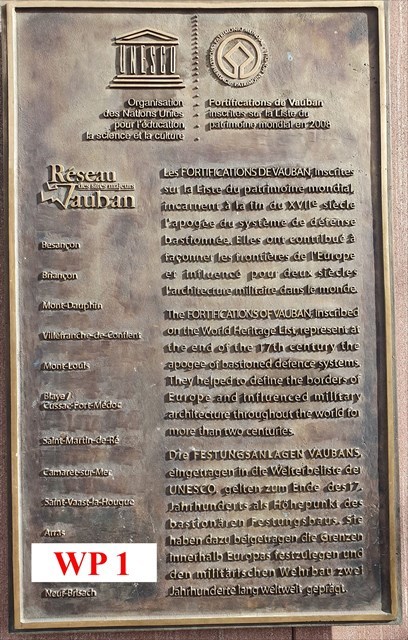 UNESCO
Organisation
des Nations Unies
pour l'éducation
la science et la culture
Fortifications de Vauban
inscrites sur la Liste du
patrimoine mondial en 2008
Réseau
des sites majeurs
Vauban
Besançon
Briançon
Mont-Dauphin
Villefranche-de-Conflent
Mont-Louis
Blaye /
Cussac-Fort-Médoc
Saint-Martin-de-Ré
Camaret-sur-Mer
Saint-Vaast-la-Hougue
Arras
WP 1
Neuf-Brisach
Les FORTIFICATIONS DE VAUBAN, inscrites
sur la Liste du patrimoine mondial,
incarnent à la fin du XVIIe siècle
l'apogée du système de défense
bastionnée. Elles ont contribué à
façonner les frontières de l'Europe
et influencé pour deux siècles
l'architecture militaire dans le monde.
The FORTIFICATIONS OF VAUBAN, inscribed
on the World Heritage List, represent at
the end of the 17th century the
apogee of bastioned defence systems.
They helped to define the borders of
Europe and influenced military
architecture throughout the world for
more than two centuries.
Die FESTUNGSANLAGEN VAUBANS,
eingetragen in die Welterbeliste der
UNESCO, gelten zum Ende des 17.
Jahrhunderts als Höhepunkt des
bastionären Festungsbaus. Sie
haben dazu beigetragen, die Grenzen
innerhalb Europas festzulegen und
den militärischen Wehrbau zwei
Jahrhunderte lang weltweit geprägt.